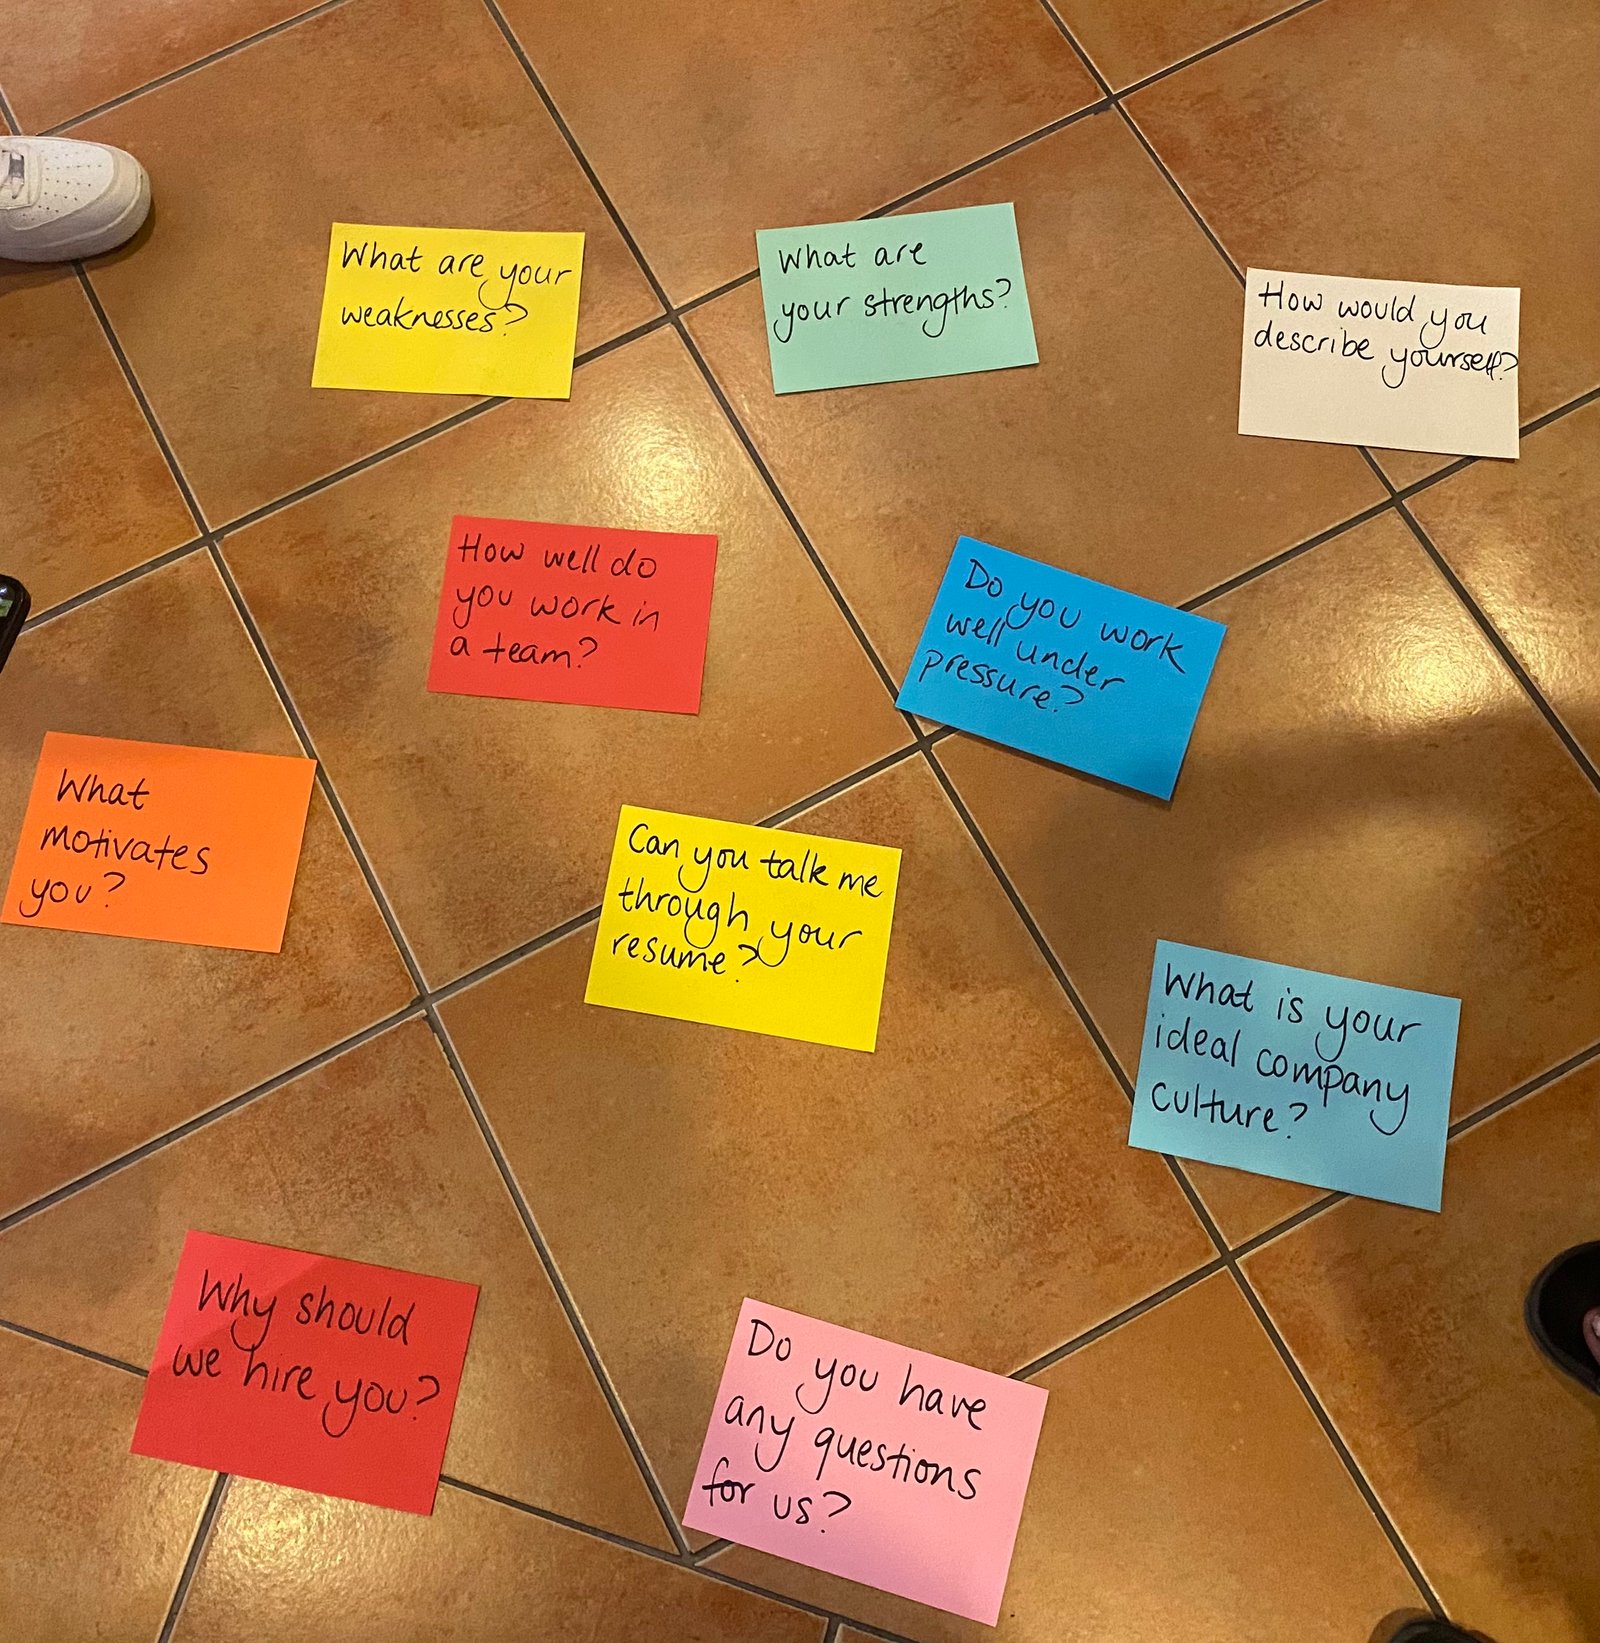 What are your
weaknesses?
What are
your strengths?
How would you
describe yourself?
How well do
you work in
a team?
Do you work
well under
pressure?
What
motivates
you?
Can you talk me
through your
resume?
What is your
ideal company
culture?
Why should
we hire you?
Do you have
any questions
for us?